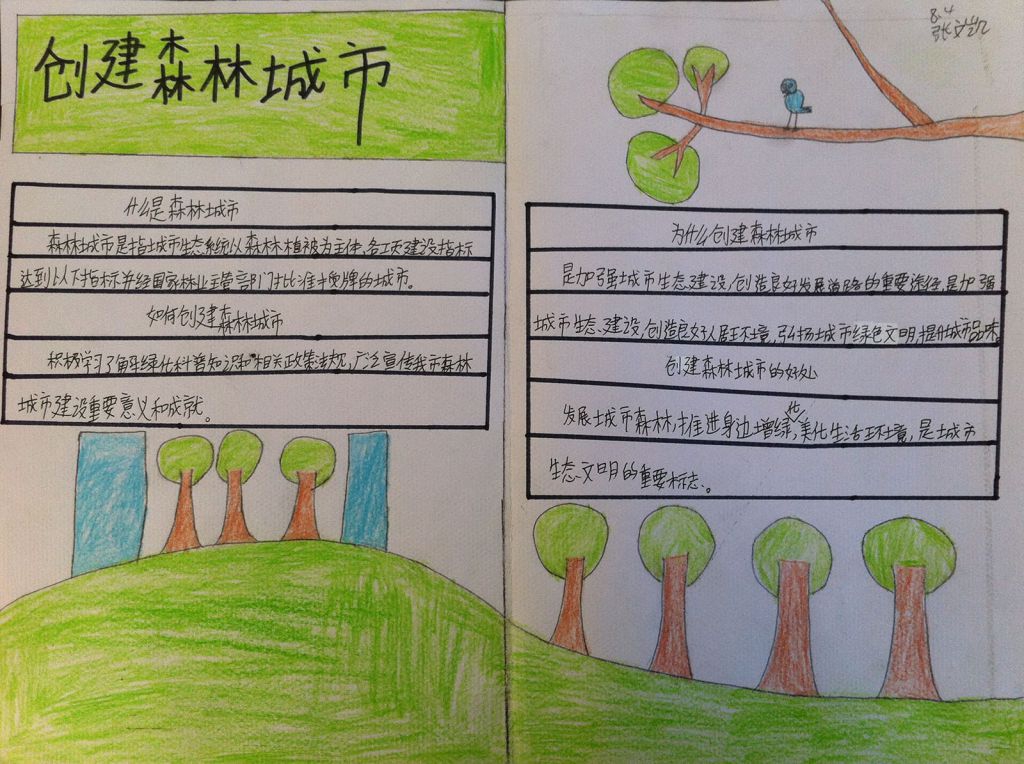 创建森林城市
什么是森林城市
森林城市是指城市生态系统以森林植被为主体,各项建设指标
达到以下指标并经国家林业主管部门批准授牌的城市。
如何创建森林城市
积极学习了解绿化科普知识和相关政策法规,广泛宣传我市森林
城市建设重要意义和成就。
8.4
张文凯
为什么创建森林城市
是加强城市生态建设,创造良好发展道路的重要途径,是加强
城市生态建设,创造良好人居环境,弘扬城市绿色文明,提升城市品味
创建森林城市的好处
发展城市森林,推进身边增绿化,美化生活环境,是城市
生态文明的重要标志。